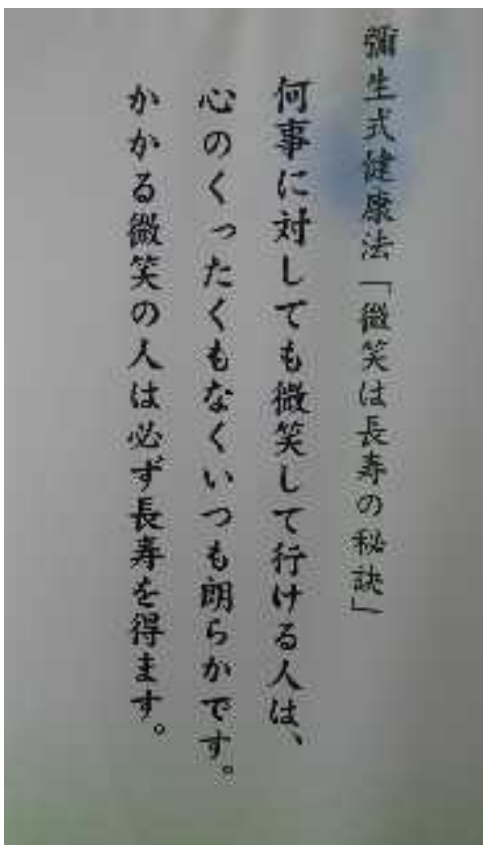 彌生式健康法「微笑は長寿の秘訣」
何事に対しても微笑して行ける人は、
心のくったくもなくいつも朗らかです。
かかる微笑の人は必ず長寿を得ます。